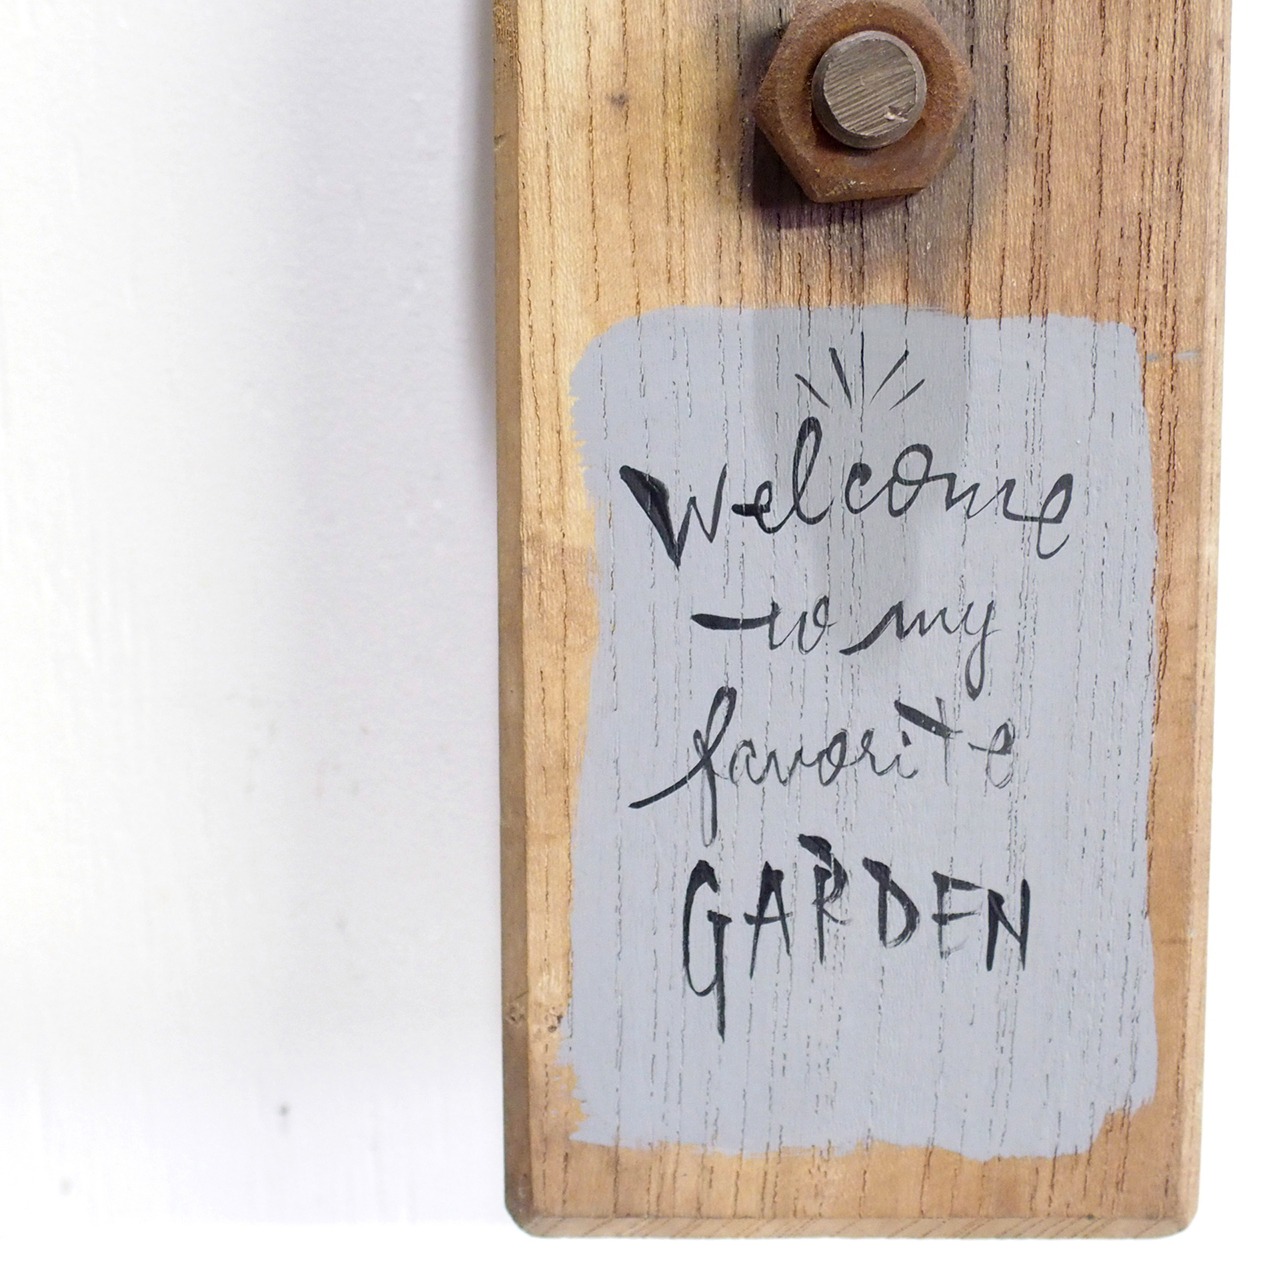 Welcome
to my
favorite
GARDEN